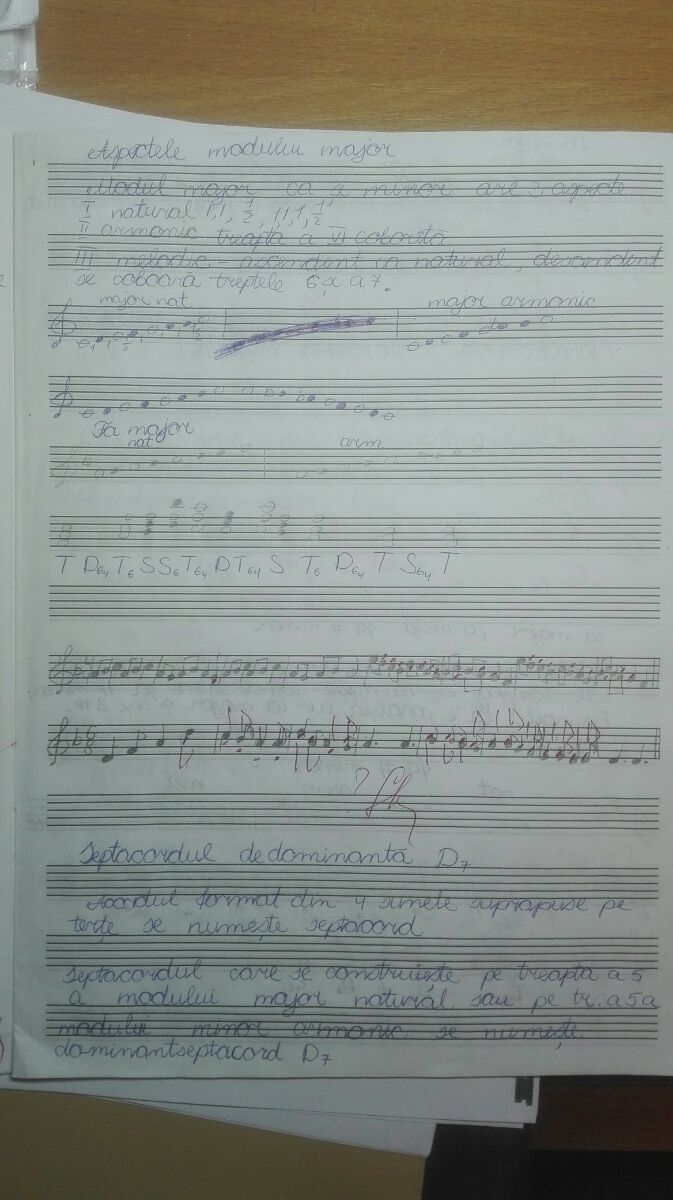 Aspectele modului major
Modul major ca și minor are 3 aspecte
I natural 1,1, 1/2, 1,1,1, 1/2
II armonic treapta a VI coborîtă
III melodic - ascendent ca natural, descendent
se coboară treptele 6 și a 7.
major nat major armonic
1 1 1/2 1 1 1 1/2
Fa major
nat arm.
T D64 T6 S S6 T64 D T64 S T6 D64 T S64 T
Septacordul de dominantă D7
Acordul format din 4 sunete suprapuse pe
terțe se numește septacord
Septacordul care se construiește pe treapta a 5
a modului major natural sau pe tr. a 5 a
modului minor armonic se numește
dominantseptacord D7